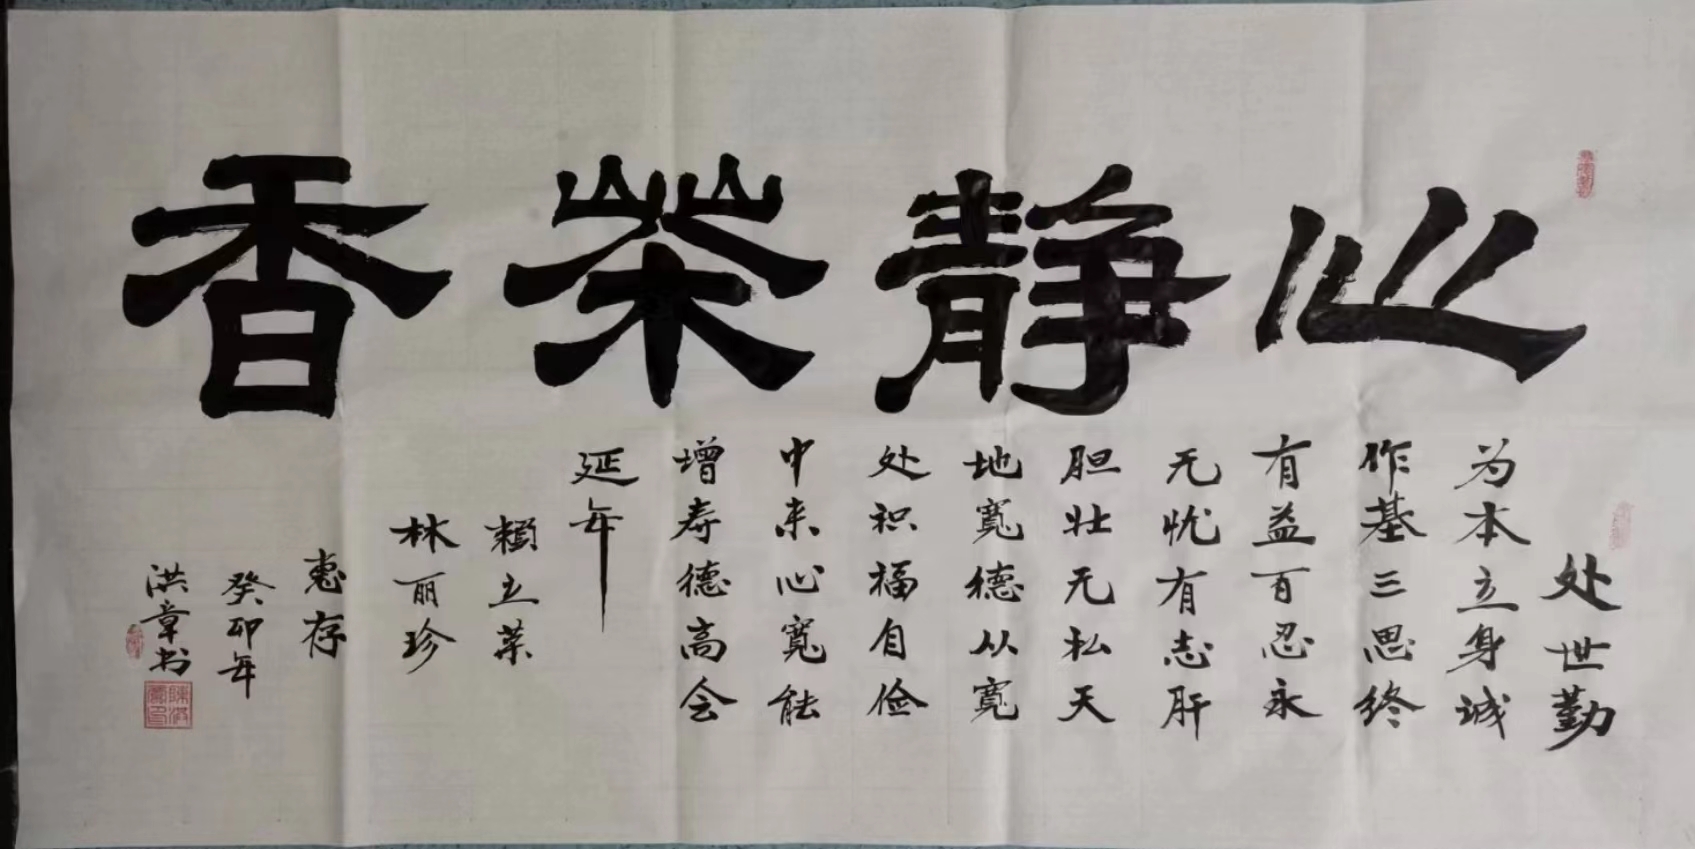 心静茶香
处世勤
为本立身诚
作基三思终
有益百忍永
无忧有志肝
胆壮无私天
地寬德从寬
处积福自俭
中来心寬能
增寿德高会
延年
賴立荣
林丽珍
惠存
癸卯年
洪章书